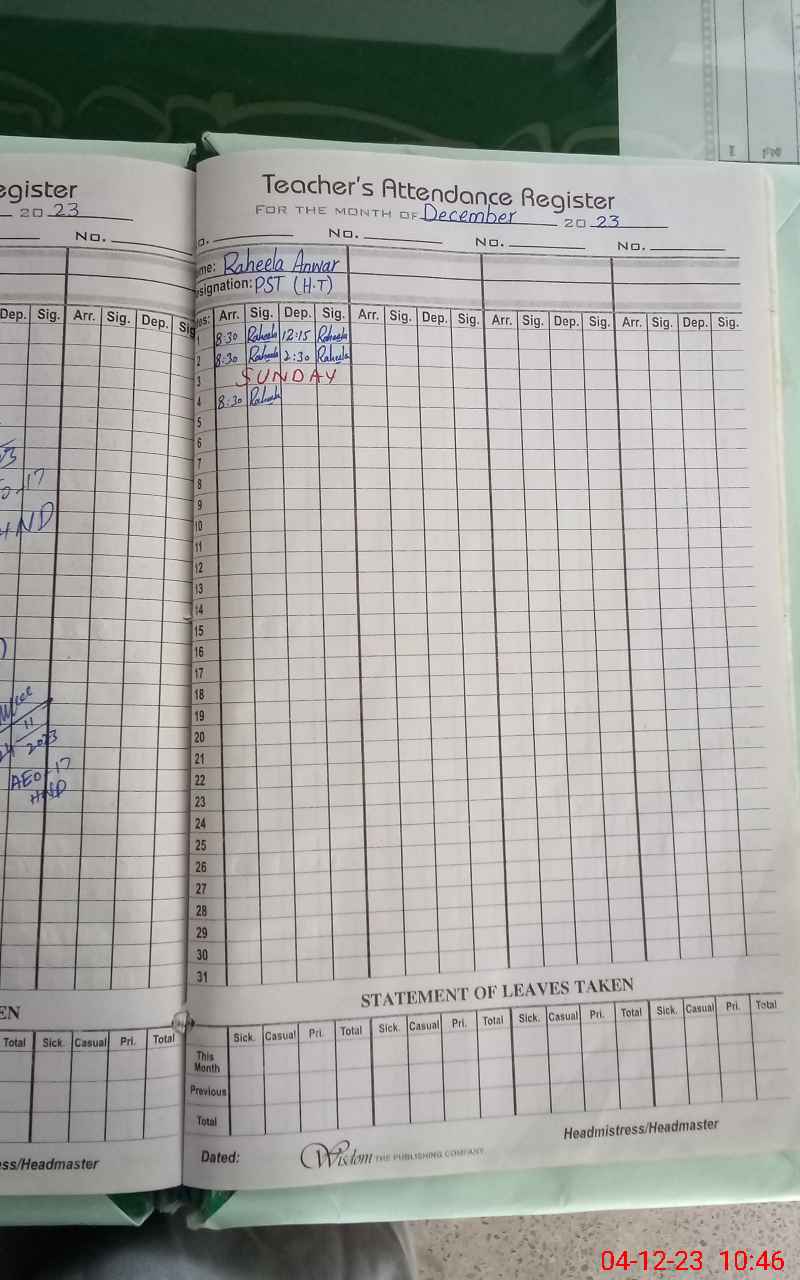 egister
20 23
No.
Dep. Sig. Arr. Sig. Dep. Sig
11
2023
AEO-17
HND
EN
Total Sick. Casual Pri. Total
ss/Headmaster
Teacher's Attendance Register
FOR THE MONTH OF December 20 23
o. No. No. No.
me: Raheela Anwar
signation: PST (H.T)
Arr. Sig. Dep. Sig. Arr. Sig. Dep. Sig. Arr. Sig. Dep. Sig. Arr. Sig. Dep. Sig.
1 8:30 Raheela 12:15 Raheela
2 8:30 Raheela 2:30 Raheela
3 SUNDAY
4 8:30 Raheela
5
6
7
8
9
10
11
12
13
14
15
16
17
18
19
20
21
22
23
24
25
26
27
28
29
30
31
STATEMENT OF LEAVES TAKEN
Sick. Casual Pri. Total Sick. Casual Pri. Total Sick. Casual Pri. Total Sick. Casual Pri. Total
This
Month
Previous
Total
Headmistress/Headmaster
Dated: Wisdom THE PUBLISHING COMPANY
04-12-23 10:46